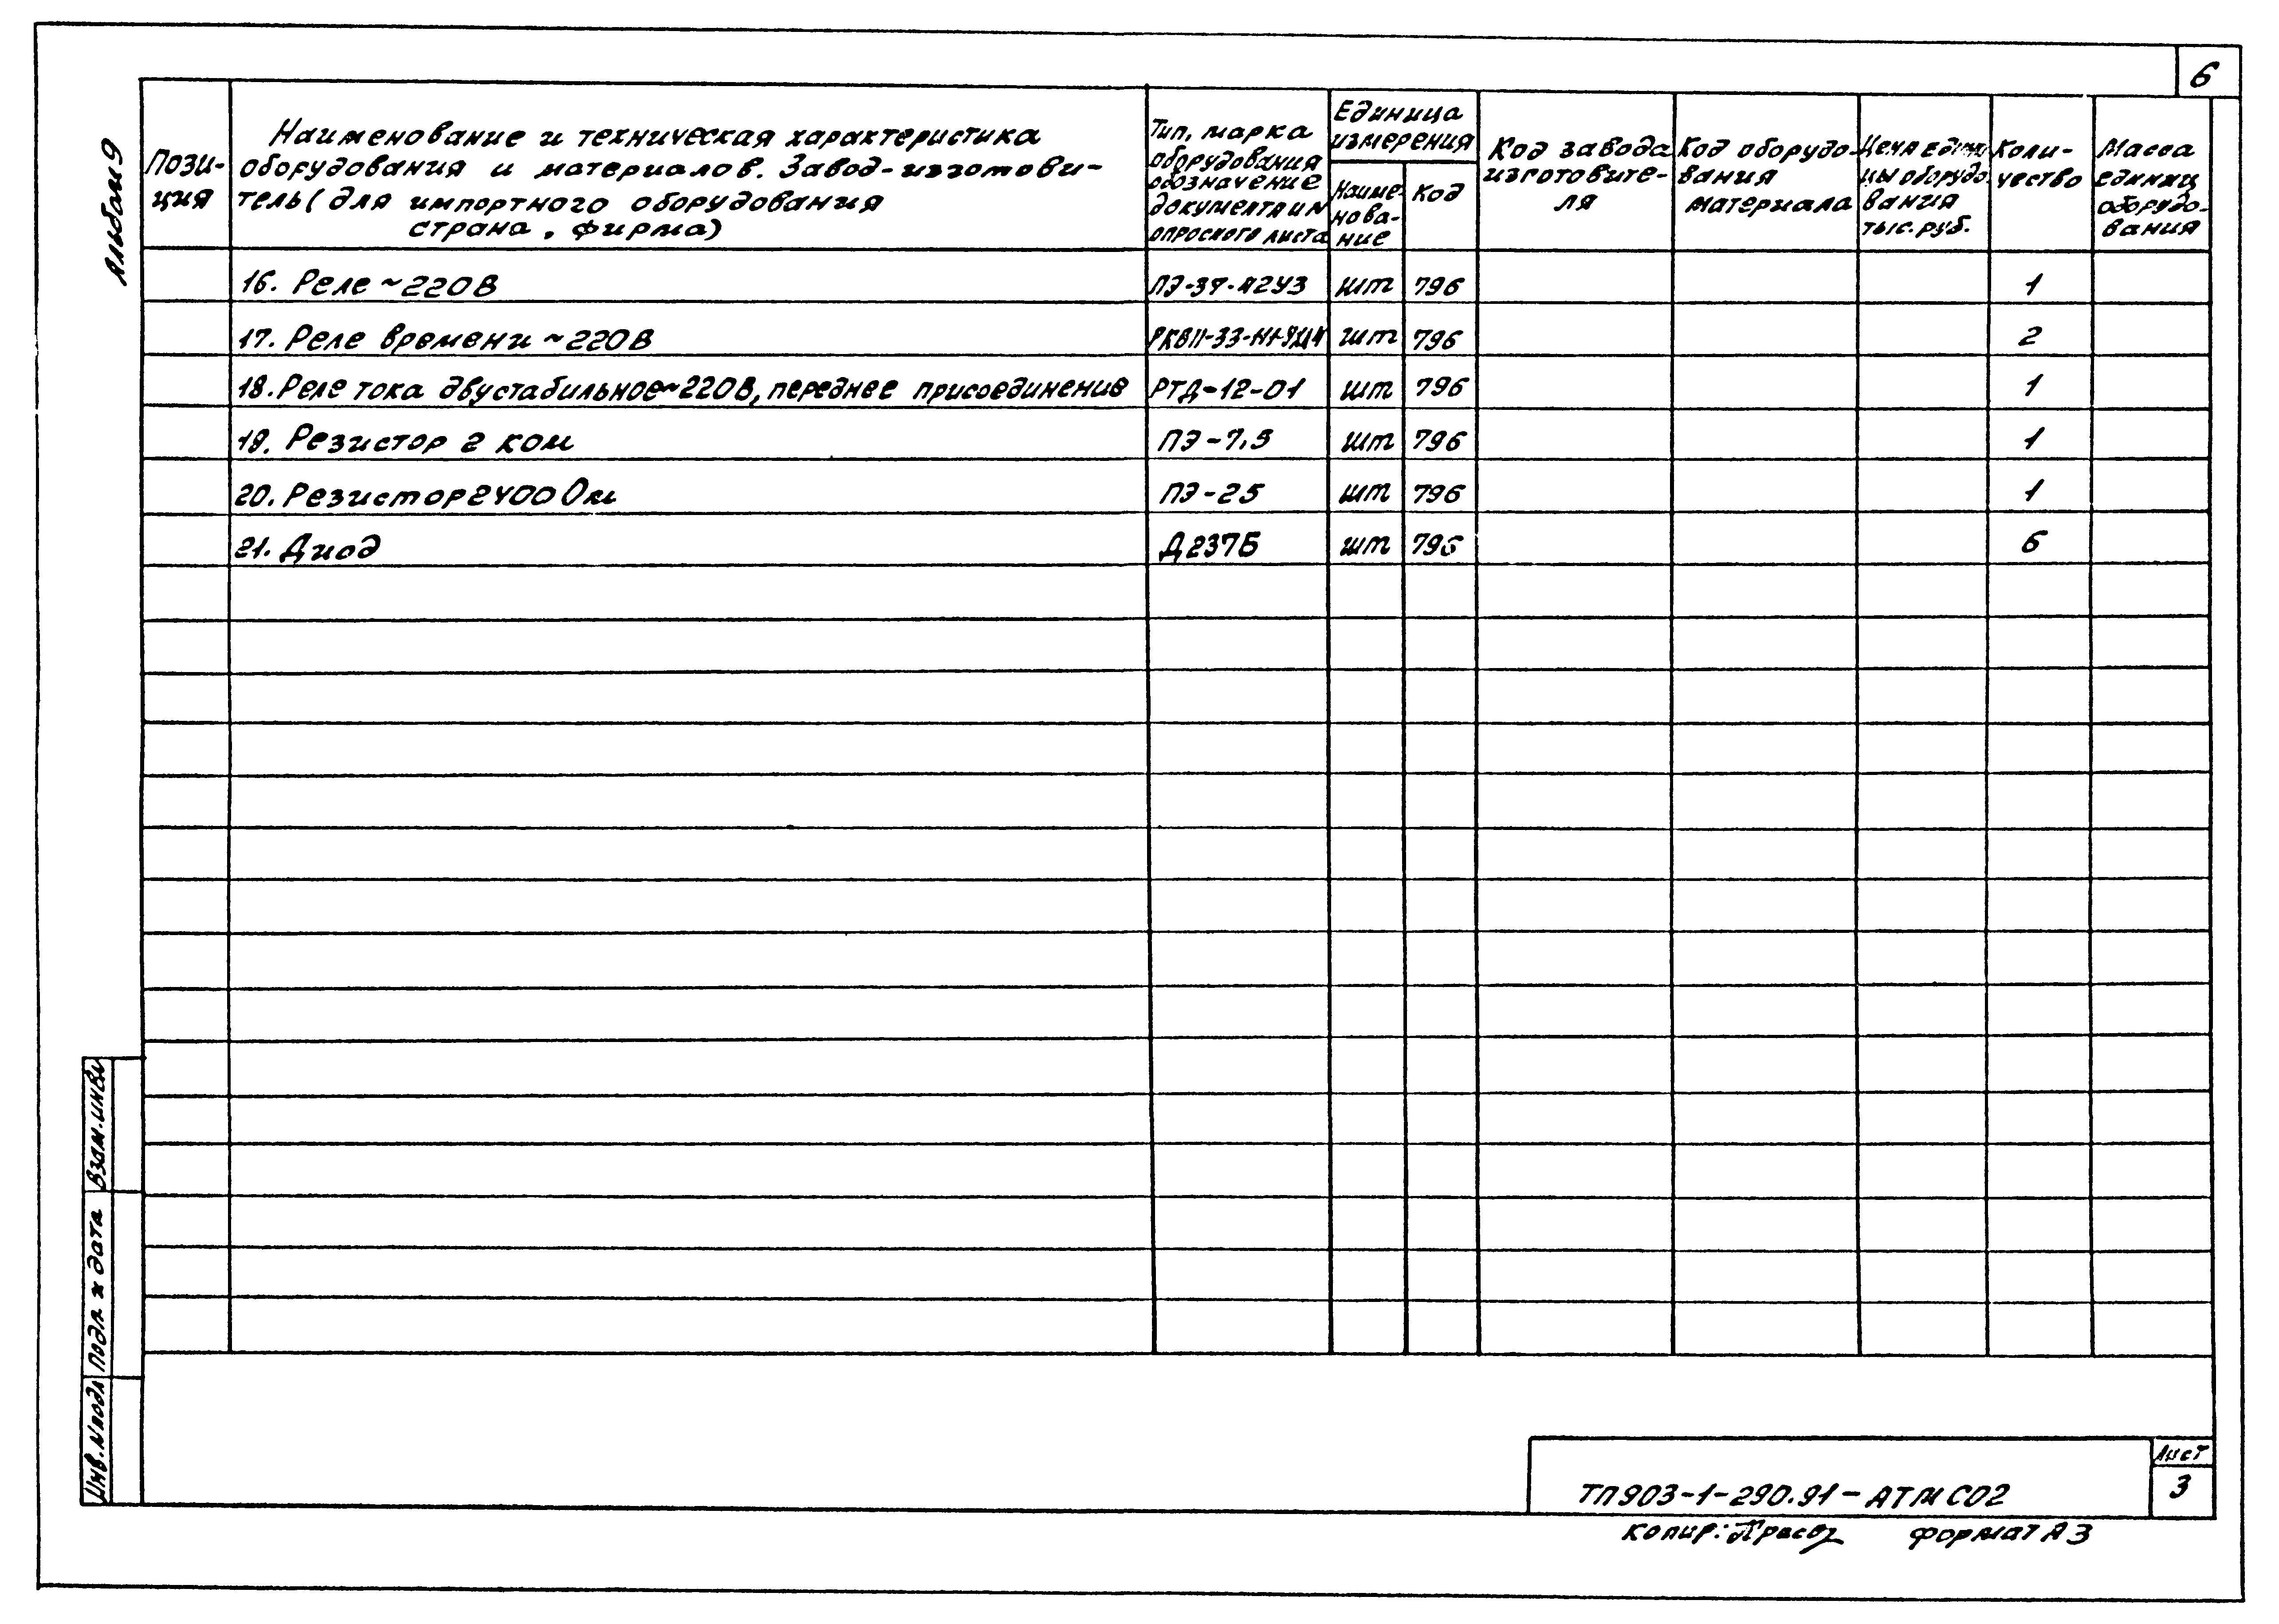 6
Альбом 9
Пози-
ция
Наименование и техническая характеристика
оборудования и материалов. Завод-изготови-
тель (для импортного оборудования
страна, фирма)
Тип, марка
оборудования
обозначение
документа и №
опросного листа
Единица
измерения
Наиме-
нова-
ние
Код
Код завода
изготовите-
ля
Код оборудо-
вания
материала
Цена едини
цы оборудо
вания
тыс. руб.
Коли-
чество
Масса
единиц
оборудо-
вания
16. Реле ~220В ПЭ-37-А2У3 шт 796 1
17. Реле времени ~220В шт 796 2
18. Реле тока двустабильное ~220В, переднее присоединение РТД-12-01 шт 796 1
19. Резистор 2 ком ПЭ-7,5 шт 796 1
20. Резистор 2400 Ом ПЭ-25 шт 796 1
21. Диод Д237Б шт 796 6
Взам. инв.
Подп и дата
Инв. №подл
ТП903-1-290.91-АТМ СО2
Лист
3
Копир: Формат А3